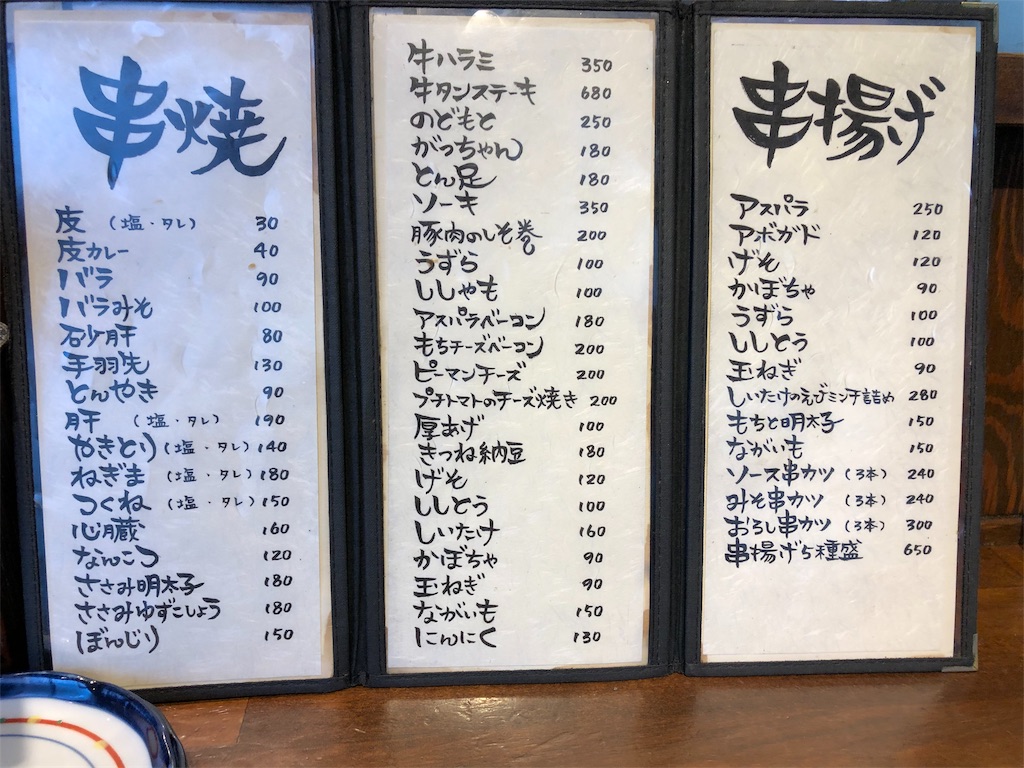 串焼
皮 (塩・タレ) 30
皮カレー 40
バラ 90
バラみそ 100
石少肝 80
手羽先 130
とんやき 90
肝 (塩・タレ) 190
やきとり (塩・タレ) 140
ねぎま (塩・タレ) 180
つくね (塩・タレ) 150
心臓 160
なんこつ 120
ささみ明太子 180
ささみゆずこしょう 180
ぼんじり 150
牛ハラミ 350
牛タンステーキ 680
のどもと 250
がっちゃん 180
とん足 180
ソーキ 350
豚肉のしそ巻 200
うずら 100
ししゃも 100
アスパラベーコン 180
もちチーズベーコン 200
ピーマンチーズ 200
プチトマトのチーズ焼き 200
厚あげ 100
きつね納豆 180
げそ 120
ししとう 100
しいたけ 160
かぼちゃ 90
玉ねぎ 90
ながいも 150
にんにく 130
串揚げ
アスパラ 250
アボガド 120
げそ 120
かぼちゃ 90
うずら 100
ししとう 100
玉ねぎ 90
しいたけのえびミンチ詰め 280
もちと明太子 150
ながいも 150
ソース串カツ (3本) 240
みそ串カツ (3本) 240
おろし串カツ (3本) 300
串揚げ5種盛 650